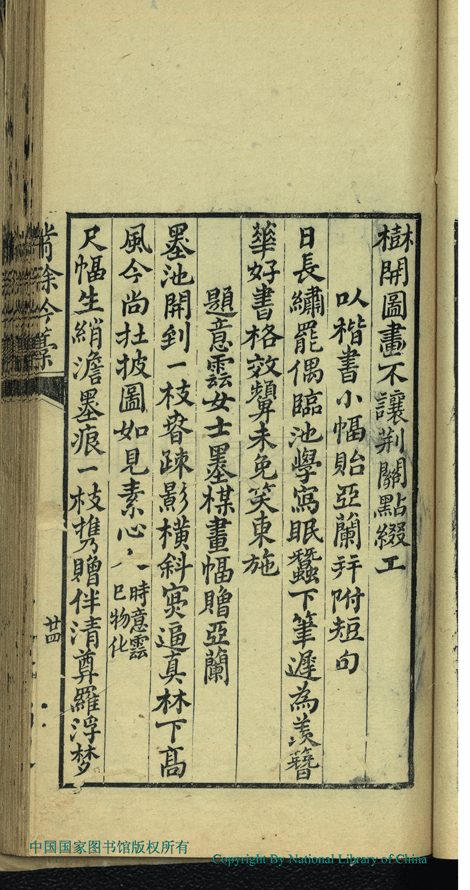 樹開圖畫不讓荆關點綴工
以楷書小幅貽亞蘭并附短句
日長繡罷偶臨池學寫眠蠶下筆遲為羨簪
華好書格效顰未免笑東施
題意雲女士墨楳畫幅贈亞蘭
墨池開到一枝春疎影橫斜寔逼真林下高
風今尚在披圖如見素心人時意雲已物化
尺幅生綃澹墨痕一枝携贈伴清尊羅浮梦
餘今
廿四
中国国家图书馆版权所有
Copyright By National Library of China